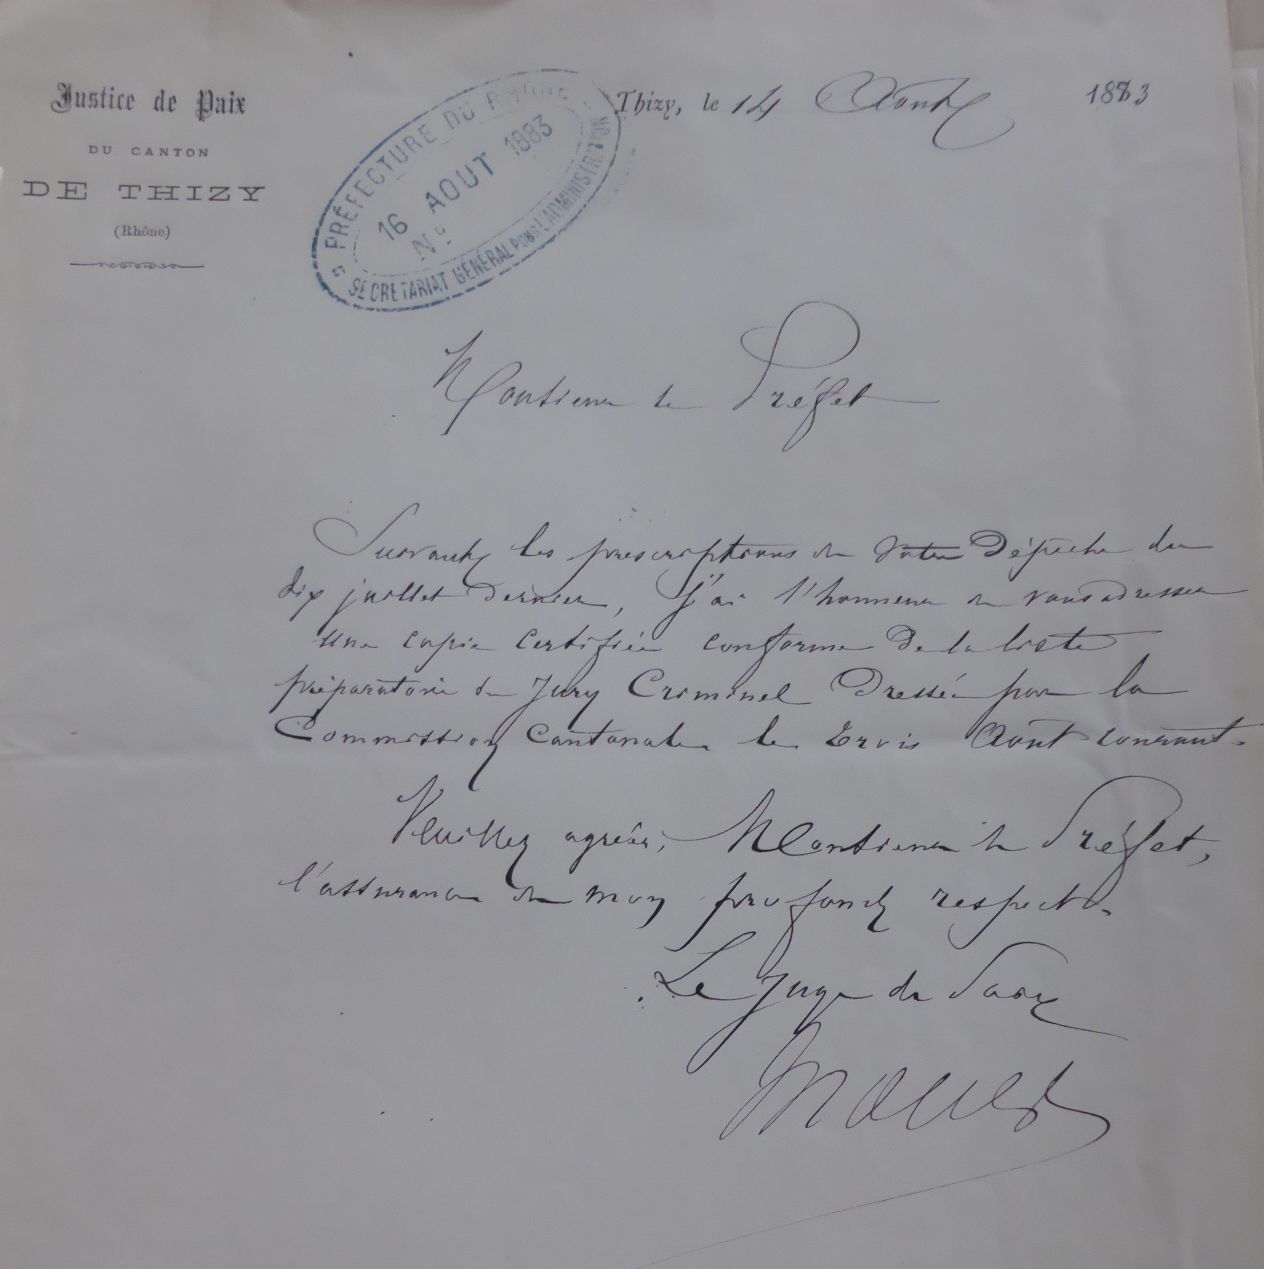 Justice de Paix
DU CANTON
DE THIZY
(Rhône)
PRÉFECTURE DU RHÔNE
16 AOUT 1883
N°
SECRÉTARIAT GÉNÉRAL POUR L'ADMINISTRATION
Thizy, le 14 Août 1883
Monsieur le Préfet
Suivant les prescriptions de votre Dépêche du
dix juillet dernier, j'ai l'honneur de vous adresser
une copie certifiée conforme de la liste
préparatoire du Jury Criminel Dressée par la
Commission Cantonale le trois Août courant.
Veuillez agréer, Monsieur le Préfet,
l'assurance de mon profond respect.
Le Juge de Paix